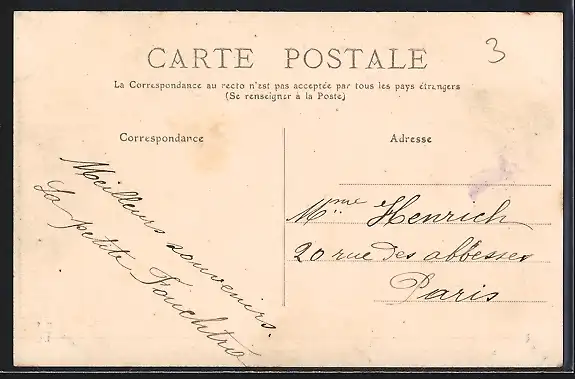 3
CARTE POSTALE
La Correspondance au recto n'est pas acceptée par tous les pays étrangers
(Se renseigner à la Poste)
Correspondance
Meilleurs souvenirs.
La petite Fouchtra
Adresse
Mme Henrich
20 rue des abbesses
Paris